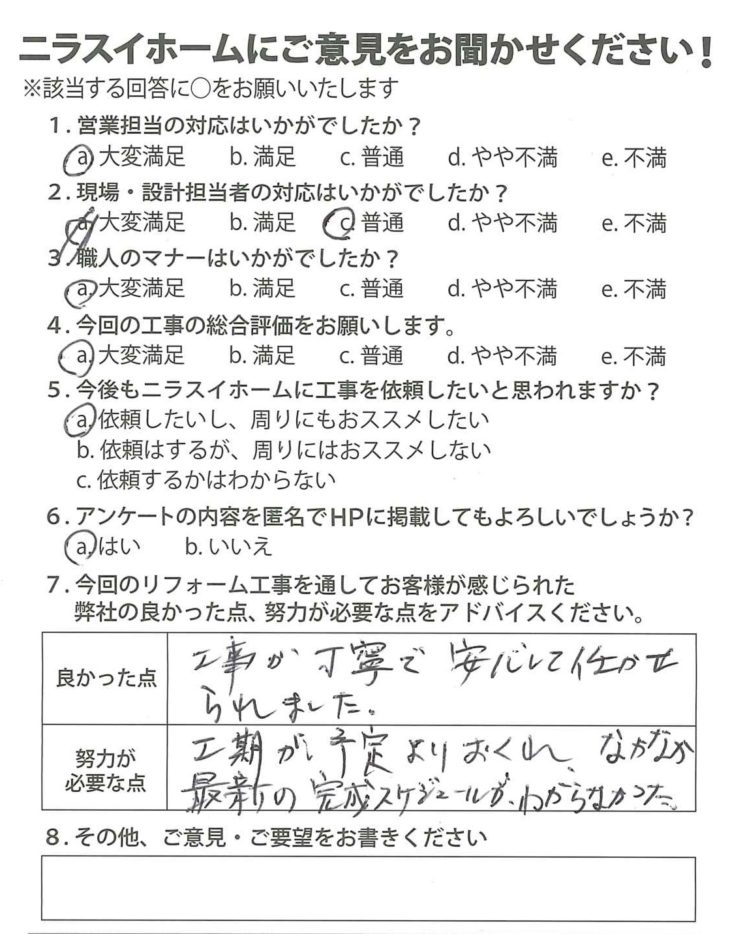 ニラスイホームにご意見をお聞かせください！
※該当する回答に○をお願いいたします
1．営業担当の対応はいかがでしたか？
a. 大変満足　b. 満足　c. 普通　d. やや不満　e. 不満
2．現場・設計担当者の対応はいかがでしたか？
a. 大変満足　b. 満足　c. 普通　d. やや不満　e. 不満
3．職人のマナーはいかがでしたか？
a. 大変満足　b. 満足　c. 普通　d. やや不満　e. 不満
4．今回の工事の総合評価をお願いします。
a. 大変満足　b. 満足　c. 普通　d. やや不満　e. 不満
5．今後もニラスイホームに工事を依頼したいと思われますか？
a. 依頼したいし、周りにもおススメしたい
b. 依頼はするが、周りにはおススメしない
c. 依頼するかはわからない
6．アンケートの内容を匿名でHPに掲載してもよろしいでしょうか？
a. はい　b. いいえ
7．今回のリフォーム工事を通してお客様が感じられた
弊社の良かった点、努力が必要な点をアドバイスください。
良かった点
工事が丁寧で安心して任かせ
られました。
努力が
必要な点
工期が予定よりおくれ、なかなか
最新の完成スケジュールが、わからなかった。
8．その他、ご意見・ご要望をお書きください